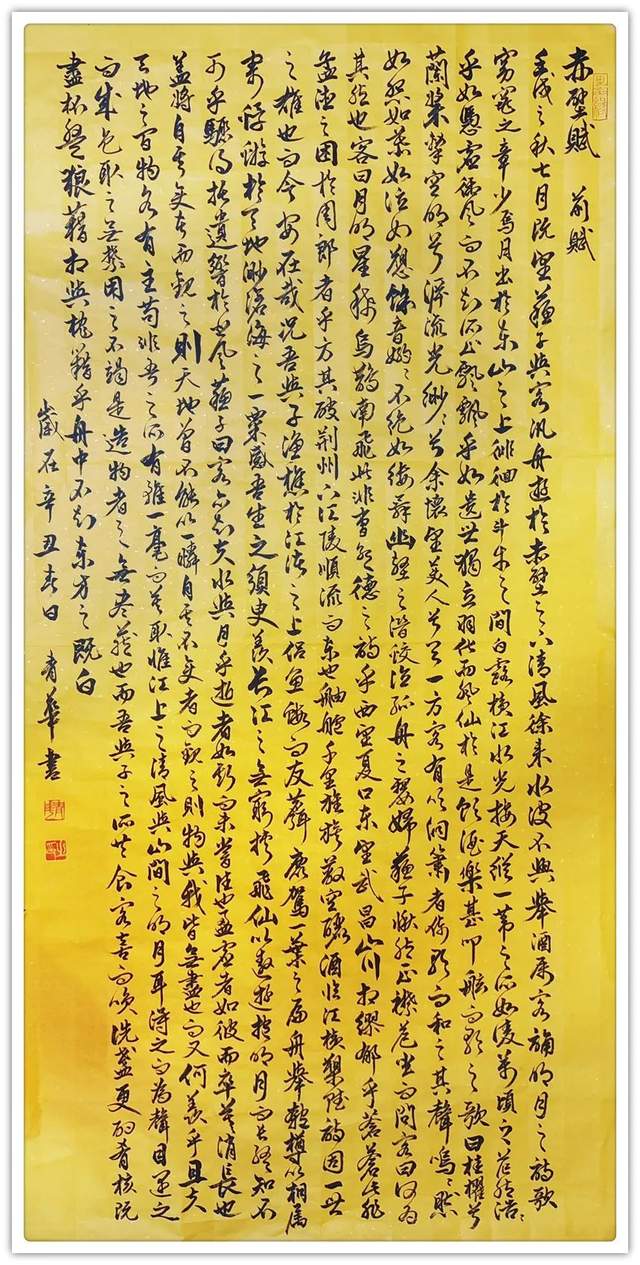 赤壁賦 前賦
壬戌之秋七月既望蘇子與客汎舟遊於赤壁之下清風徐來水波不興舉酒屬客誦明月之詩歌
窈窕之章少焉月出於東山之上徘徊於斗牛之間白露橫江水光接天縱一葦之所如凌萬頃之茫然浩浩
乎如憑虛御風而不知所止飄飄乎如遺世獨立羽化而登仙於是飲酒樂甚叩舷而歌之歌曰桂櫂兮
蘭槳擊空明兮泝流光渺渺兮余懷望美人兮天一方客有吹洞簫者倚歌而和之其聲嗚嗚然
如怨如慕如泣如訴餘音嫋嫋不絕如縷舞幽壑之潛蛟泣孤舟之嫠婦蘇子愀然正襟危坐而問客曰何為
其然也客曰月明星稀烏鵲南飛此非曹孟德之詩乎西望夏口東望武昌山川相繆鬱乎蒼蒼此非
孟德之困於周郎者乎方其破荊州下江陵順流而東也舳艫千里旌旗蔽空釃酒臨江橫槊賦詩固一世
之雄也而今安在哉況吾與子漁樵於江渚之上侶魚蝦而友麋鹿駕一葉之扁舟舉匏樽以相屬
寄蜉蝣於天地渺滄海之一粟哀吾生之須臾羨長江之無窮挾飛仙以遨遊抱明月而長終知不
可乎驟得托遺響於悲風蘇子曰客亦知夫水與月乎逝者如斯而未嘗往也盈虛者如彼而卒莫消長也
蓋將自其變者而觀之則天地曾不能以一瞬自其不變者而觀之則物與我皆無盡也而又何羨乎且夫
天地之間物各有主苟非吾之所有雖一毫而莫取惟江上之清風與山間之明月耳得之而為聲目遇之
而成色取之無禁用之不竭是造物者之無盡藏也而吾與子之所共食客喜而笑洗盞更酌肴核既
盡杯盤狼藉相與枕藉乎舟中不知東方之既白
歲在辛丑春日 青華書